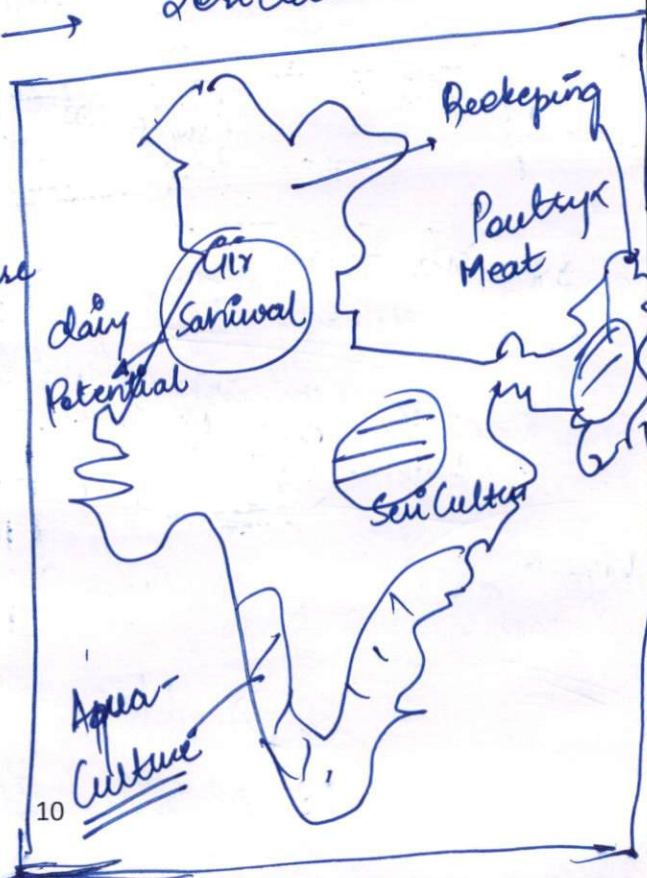 Beekeping
Poultry
Meat
Gir
Sahiwal
dairy
Potential
SeriCultur
Aqua-
Culture
10